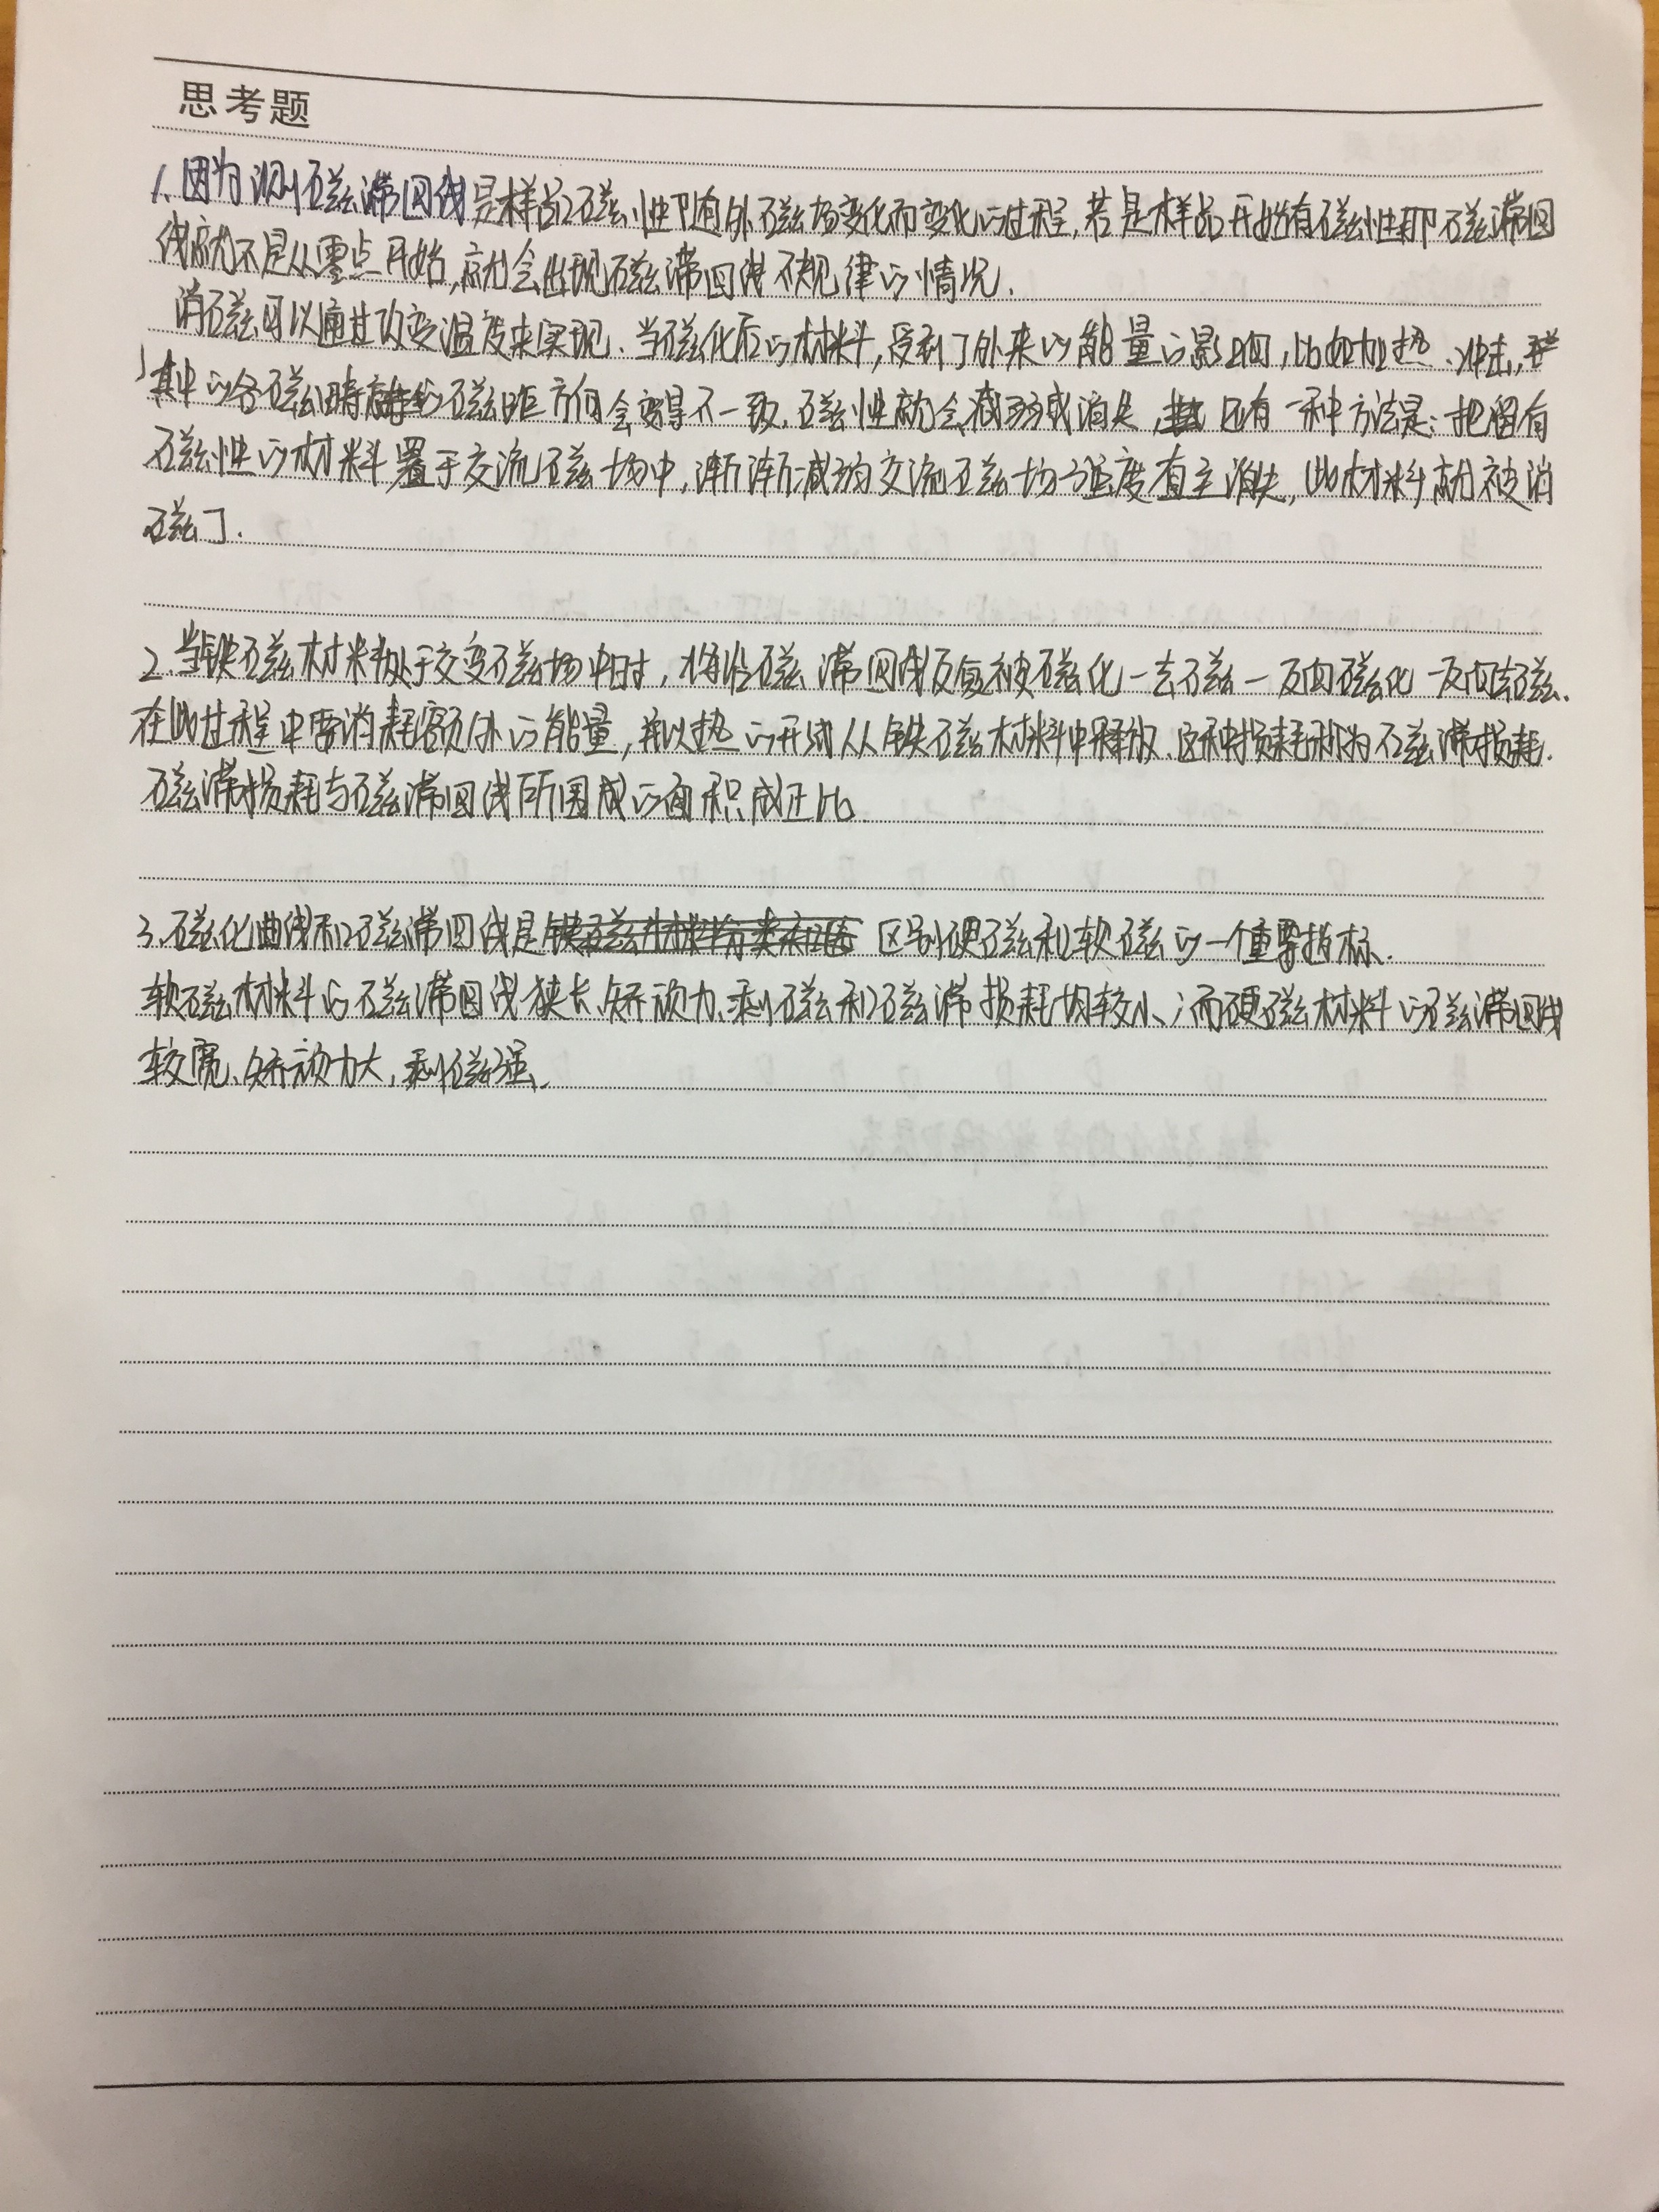 思考题
1.因为测磁滞回线是样品磁性随外磁场变化而变化的过程,若是样品开始有磁性那磁滞回
线就不是从零点开始,就会出现磁滞回线不规律的情况.
消磁可以通过改变温度来实现.当磁化后的材料,受到了外来的能量的影响,比如加热、冲击,
其中的各磁畴的磁矩方向会变得不一致,磁性就会减弱或消失,还有一种方法是:把留有
磁性的材料置于交流磁场中,渐渐减弱交流磁场强度直至消失,此材料就被消
磁了.
2.当铁磁材料处于交变磁场中时,将沿磁滞回线反复被磁化—去磁—反向磁化—反向去磁.
在此过程中要消耗额外的能量,并以热的形式从铁磁材料中释放.这种损耗称为磁滞损耗.
磁滞损耗与磁滞回线所围成的面积成正比.
3.磁化曲线和磁滞回线是区别硬磁和软磁的一个重要指标.
软磁材料的磁滞回线狭长、矫顽力、剩磁和磁滞损耗均较小;而硬磁材料的磁滞回线
较宽、矫顽力大,剩磁强.